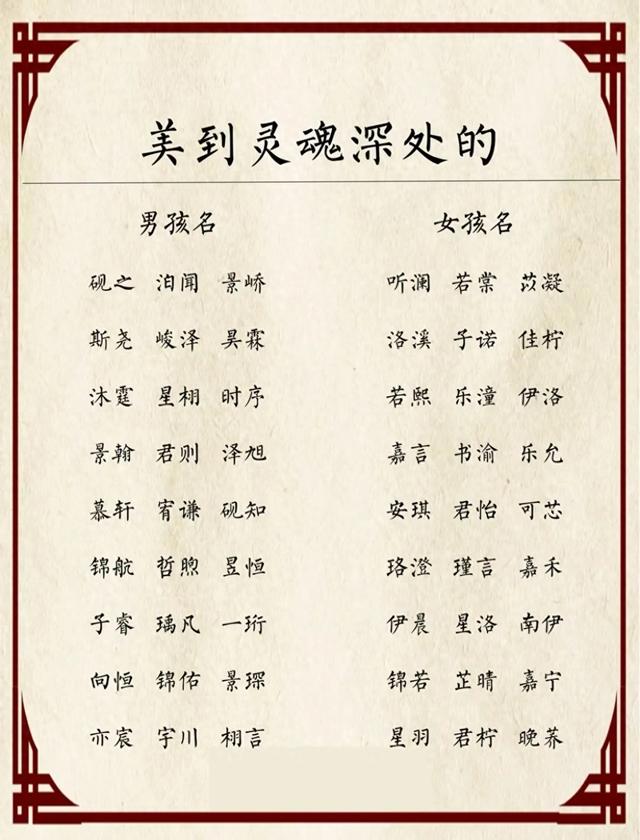 美到灵魂深处的
男孩名 女孩名
砚之 泊闻 景峤 听澜 若棠 苡凝
斯尧 峻泽 昊霖 洛溪 子诺 佳柠
沐霆 星栩 时序 若熙 乐潼 伊洛
景翰 君则 泽旭 嘉言 书渝 乐允
慕轩 宥谦 砚知 安琪 君怡 可芯
锦航 哲煦 昱恒 珞澄 瑾言 嘉禾
子睿 瑀凡 一珩 伊晨 星洛 南伊
向恒 锦佑 景琛 锦若 芷晴 嘉宁
亦宸 宇川 栩言 星羽 君柠 晚荞